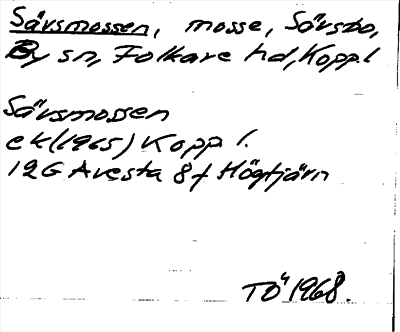 Sävsmossen, mosse, Sävsbo,
By sn, Folkare hd, Kopp. l
Sävsmossen
ek (1965) Kopp l.
12G Avesta 8f Högtjärn
TÖ 1968.